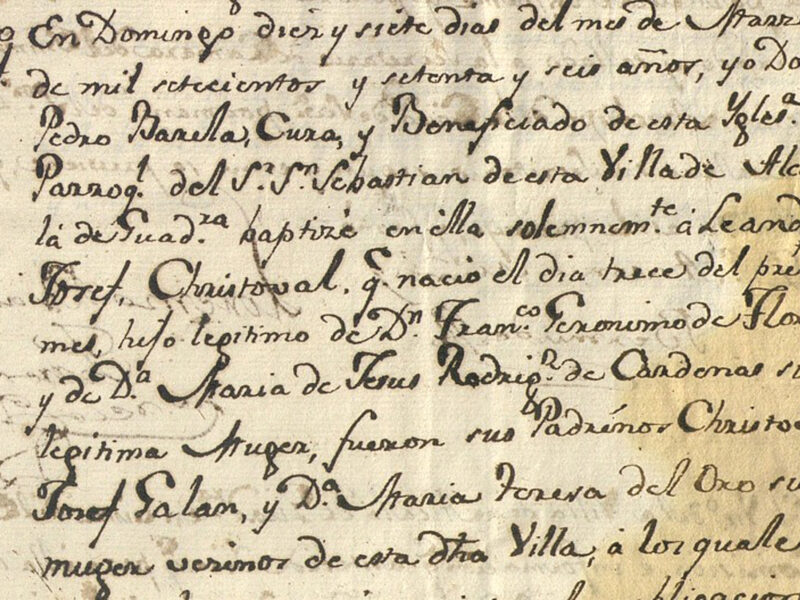 En Domingo diez y siete dias del mes de Marz
de mil setecientos y setenta y seis años, yo Do
Pedro Barela, Cura, y Beneficiado de esta Ygles.ª
Parroq.l del S.r S.n Sebastian de esta Villa de Alca
lá de Guad.ra baptizé en élla solemnem.te á Leand
Josef, Christoval, q. nacio el dia trece del pre
mes, hijo legitimo de D.n Fran.co Geronimo de Flor
y de D.ª Maria de Jesus Rodrig.z de Cardenas su
legitima Muger, fueron sus Padrínos Christo
Josef Galan, y D.ª Maria Teresa del Oro su
muger vezinos de esta dha Villa, á los quale